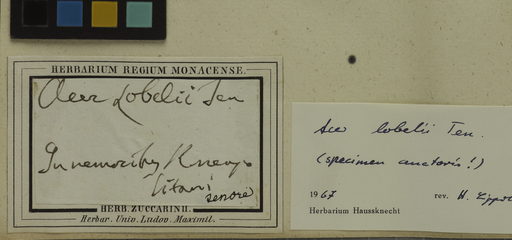 HERBARIUM REGIUM MONACENSE.
Acer Lobelii Ten
In nemoribus
Titani
Tenore
HERB. ZUCCARINII.
Herbar. Univ. Ludov. Maximil.
Acer lobelii Ten.
(specimen auctoris!)
1967 rev. H.
Herbarium Haussknecht